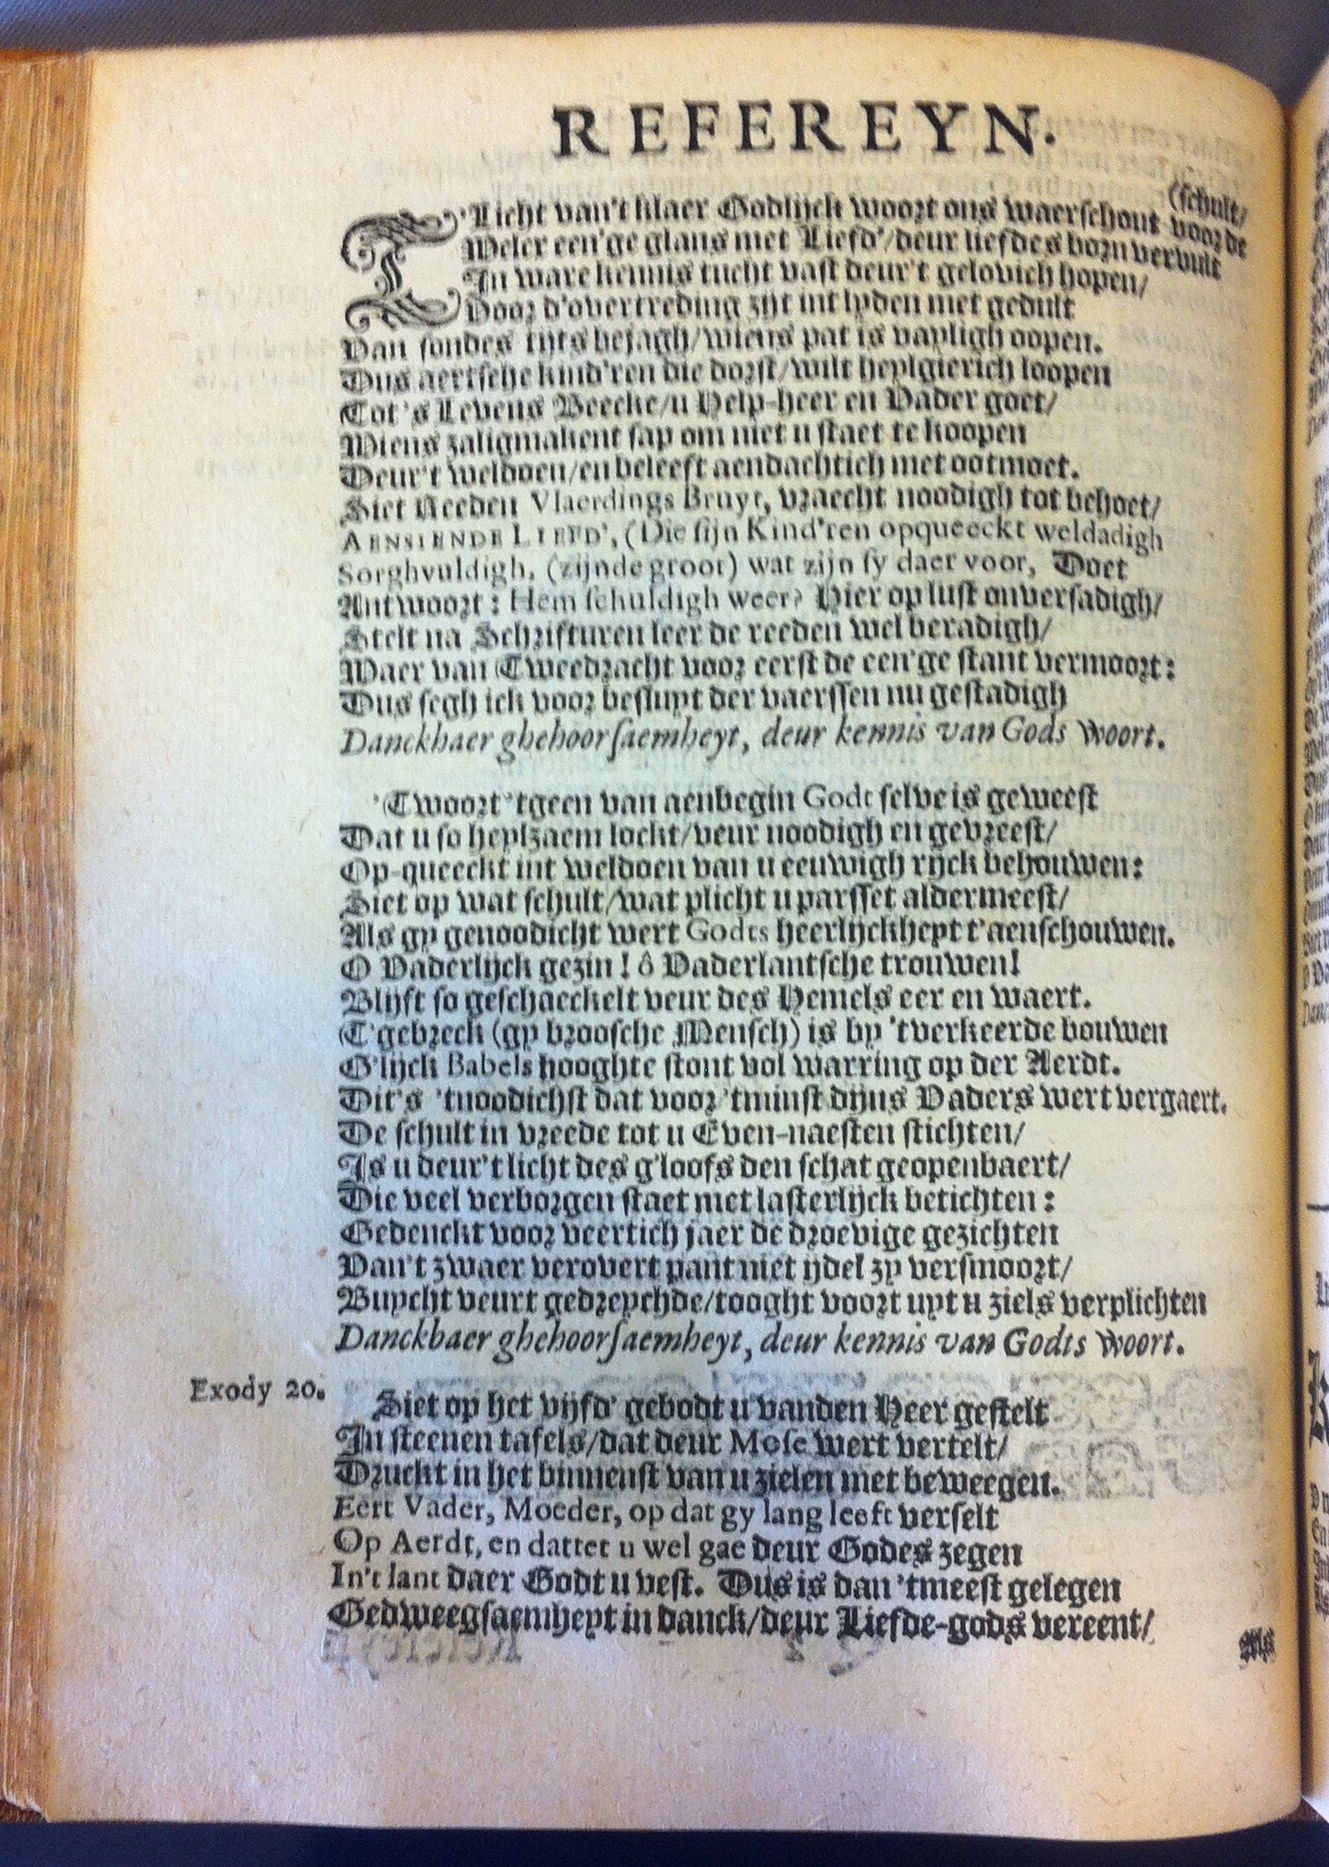 REFEREYN.
T'Licht van't klaer Godlijck woort ons waerschout voor de (schult/
Weler een'ge glans met Liefd'/deur liefdes born vervult
In ware kennis tucht vast deur't gelovich hopen/
Door d'overtreding zijt int lyden met gedult
Van sondes tijts bejagh/wiens pat is vayligh oopen.
Dus aertsche kind'ren die dorst/wilt heylgierich loopen
Tot 's Levens Beecke/u Help-heer en Vader goet/
Wiens zaligmakent sap om niet u staet te koopen
Deur't weldoen/en beleeft aendachtich met ootmoet.
Siet Reeden Vlaerdings Bruyt, vraecht noodigh tot behoet/
AENSIENDE LIEFD', (Die sijn Kind'ren opqueeckt weldadigh
Sorghvuldigh, (zijnde groot) wat zijn sy daer voor, Doet
Antwoort: Hem schuldigh weer? Hier op lust onversadigh/
Stelt na Schrifturen leer de reeden wel beradigh/
Waer van Tweedracht voor eerst de een'ge stant vermoort:
Dus segh ick voor besluyt der vaerssen nu gestadigh
Danckbaer ghehoorsaemheyt, deur kennis van Gods woort.
'Twoort 'tgeen van aenbegin Godt selve is geweest
Dat u so heylzaem lockt/veur noodigh en gevreest/
Op-queeckt int weldoen van u eeuwigh rijck behouwen:
Siet op wat schult/wat plicht u parsset aldermeest/
Als gy genoodicht wert Godts heerlijckheyt t'aenschouwen.
O Vaderlijck gezin! ô Vaderlantsche trouwen!
Blijft so geschaeckelt veur des Hemels eer en waert.
T'gebreck (gy broosche Mensch) is by 'tverkeerde bouwen
G'lijck Babels hooghte stont vol warring op der Aerdt.
Dit's 'tnoodichst dat voor 'tminst dijns Vaders wert vergaert.
De schult in vreede tot u Even-naesten stichten/
Is u deur't licht des g'loofs den schat geopenbaert/
Die veel verborgen staet met lasterlijck betichten:
Gedenckt voor veertich jaer de droevige gezichten
Van't zwaer verovert pant niet ijdel zy versmoort/
Buycht veurt gedreychde/tooght voort uyt u ziels verplichten
Danckbaer ghehoorsaemheyt, deur kennis van Godts woort.
Exody 20.
Siet op het vijfd' gebodt u vanden Heer gestelt
In steenen tafels/dat deur Mose wert vertelt/
Druckt in het binnenst van u zielen met beweegen.
Eert Vader, Moeder, op dat gy lang leeft verselt
Op Aerdt, en dattet u wel gae deur Godes zegen
In't lant daer Godt u vest. Dus is dan 'tmeest gelegen
Gedweegsaemheyt in danck/deur Liefde-gods vereent/
Als